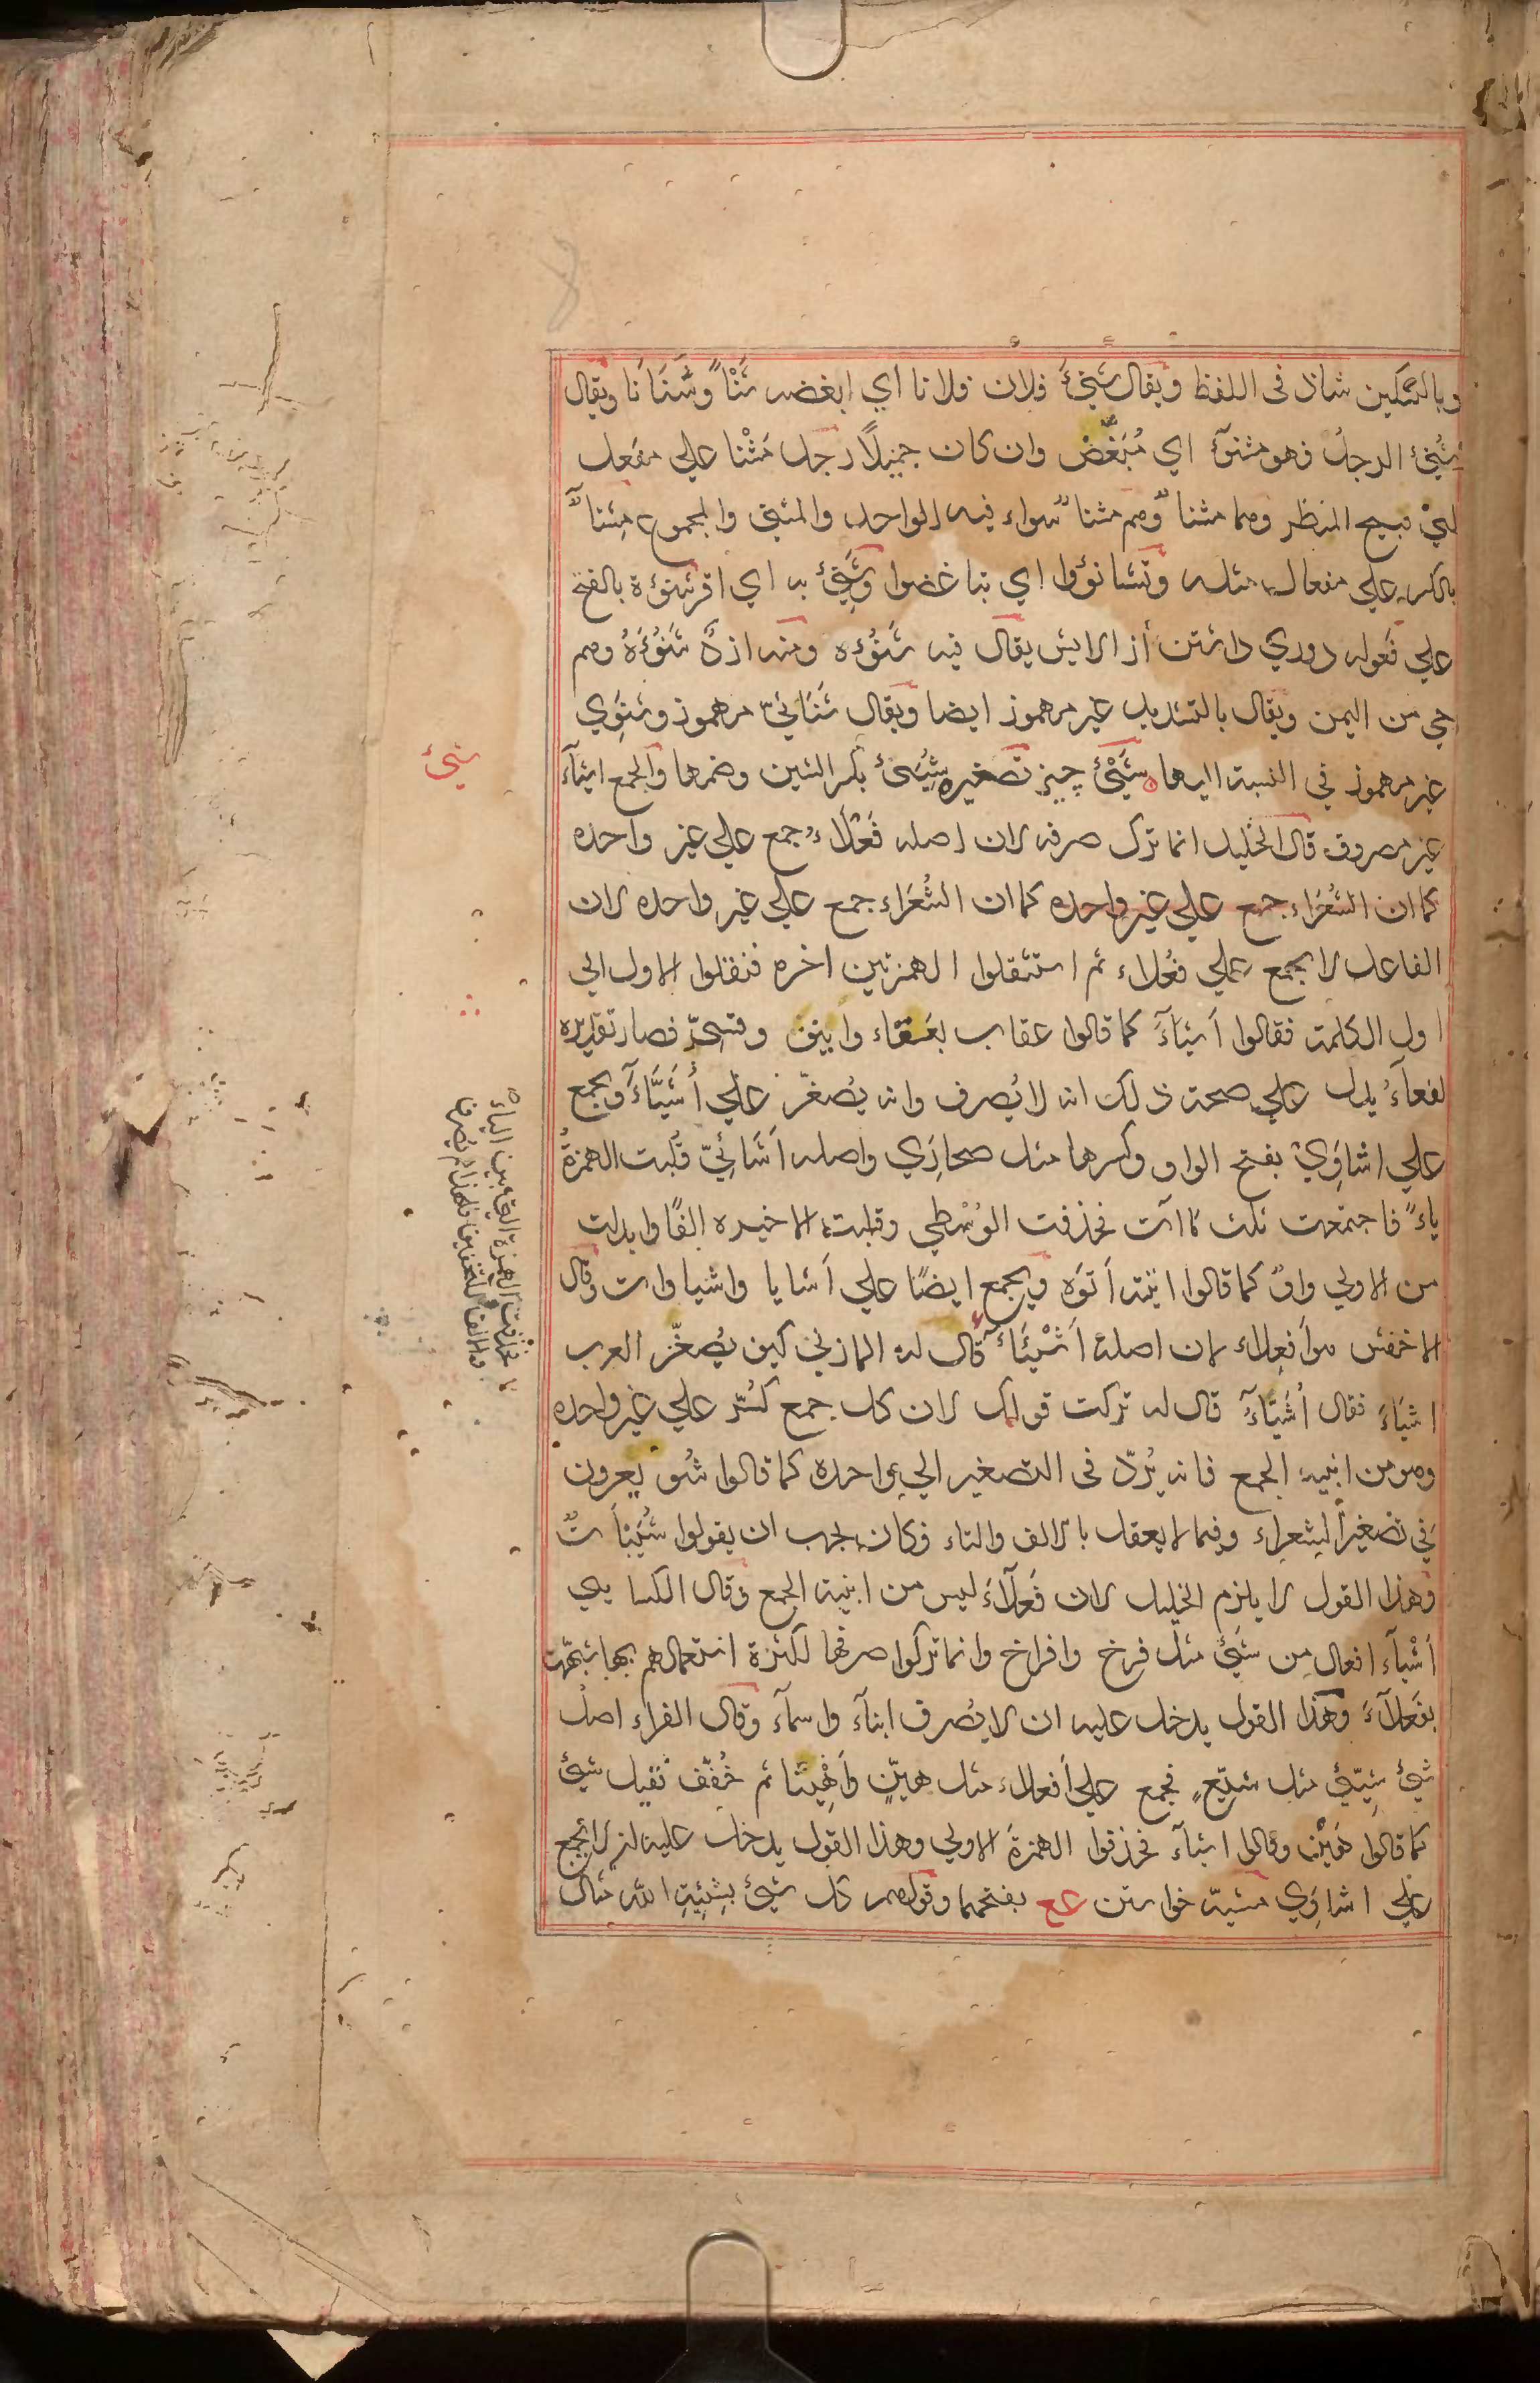 وبالتسكين شاذ فى اللفظ ويقال شَنِئَ فلان فلانا اي ابغضه شَنْأً وشَنَأَنا ويقال
شُنِئ الرجلُ فهو مشنوٓ اي مُبَغَّضٌ وان كان جميلًا رجل مَشْنا علي مفعل
اي قبيح المنظر وهما مشنا وهم مشنا سواء فيه الواحد والمثني والمجموع مِشنآ
بالكسر علي مفعال مثله وتشانؤوا اي تباغضوا وشَنِئَ به اي اقر شنوُة بالفتح
علي فَعوله دوري داشتن از الايش يقال فيه شَنُؤه ومنه ازدُ شَنُؤَةُ وهم
حي من اليمن ويقال بالتشديد غير مهموز ايضا ويقال شَنَائيّ مرهموز وشنَوِي
غير مرهموز في النسبة اليها شَيْئٌ چيز تصغيره شُيَيئ بكسر الشين وضمها والجمع اشيآء
غير مصروف قال الخليل انما ترك صرفه لان اصله فَعْلَاءُ جمع علي غير واحده
كما ان الشُعَرَاء جمع علي غير واحده كما ان الشُعَرَاء جمع علي غير واحده لان
الفاعل لا يجمع علي فعُلاء ثم استثقلوا الهمزتين اخره فنقلوا الاول الى
اول الكلمة فقالوا اَشيَآءَ كما قالوا عقاب بعَنقاء واينق وقسيّ فصار تقديره
لفعآءُ يدل علي صحة ذلك انه لا يُصرف وانه يُصغّر علي أُشَيَّاءَ ويجمع
علي اشاوَِيْ بفتح الواو وكسرها مثل صحارَِي واصله اَشَائيّ قُلبت الهمزةُ
ياءً فاجتمعت ثلث ياآت فحذفت الوُسْطي وقلبت الاخيره الِفًا وابدلت
من الاولي واوٌ كما قالوا اتيته اَتوَه ويجمع ايضًا علي اَشايا واشياوات وقال
الاخفش هو اَفعِلاء لان اصله اَشْيِئَاءُ قال له المازني كيف يُصغّر العرب
اشيَاءَ فقال اُشَيَّآءَ قال له تركت قولك لان كل جمع كُسّر علي غير واحده
وهو من ابنيه الجمع فانه يُردّ فى التصغير الي واحده كما قالوا شُويعرون
في تصغير الشعراء وفيما لا يعقل بالالف والتاء فكان يجب ان يقولوا شُيَيئَات
وهذا القول لا يلزم الخليل لان فَعلَآءَ ليس من ابنية الجمع وقال الكسايي
اَشْيآء افعال من شَيئٍ مثل فرخ وافراخ وانما تركوا صرفها لكثرة استعمالهم بها شبّهت
بفَعلآءَ وهذا القول يدخل عليه ان لا يُصرف ابنآءَ واسمآءَ وقال الفراء اصلُ
شيئ شَيِّئ مثل شيّعٍ فجمع علي اَفعلاء مثل هيّنٍ واَهْيِنَا ثم خُفّف فقيل شيئ
كما قالوا هَيْن وقالوا اشيآء فحذفوا الهمزةَ الاولي وهذا القول يدخل عليه ان لا يجمع
علي اشاوَي مشيّة خواستن عع بفتحهما وقولهم كل شيئ بشِيئةِ الله مثال
شيئ
فحذفت الهمزة التي بين الياء
والالف للتخفيف فلهذا لم يصرف